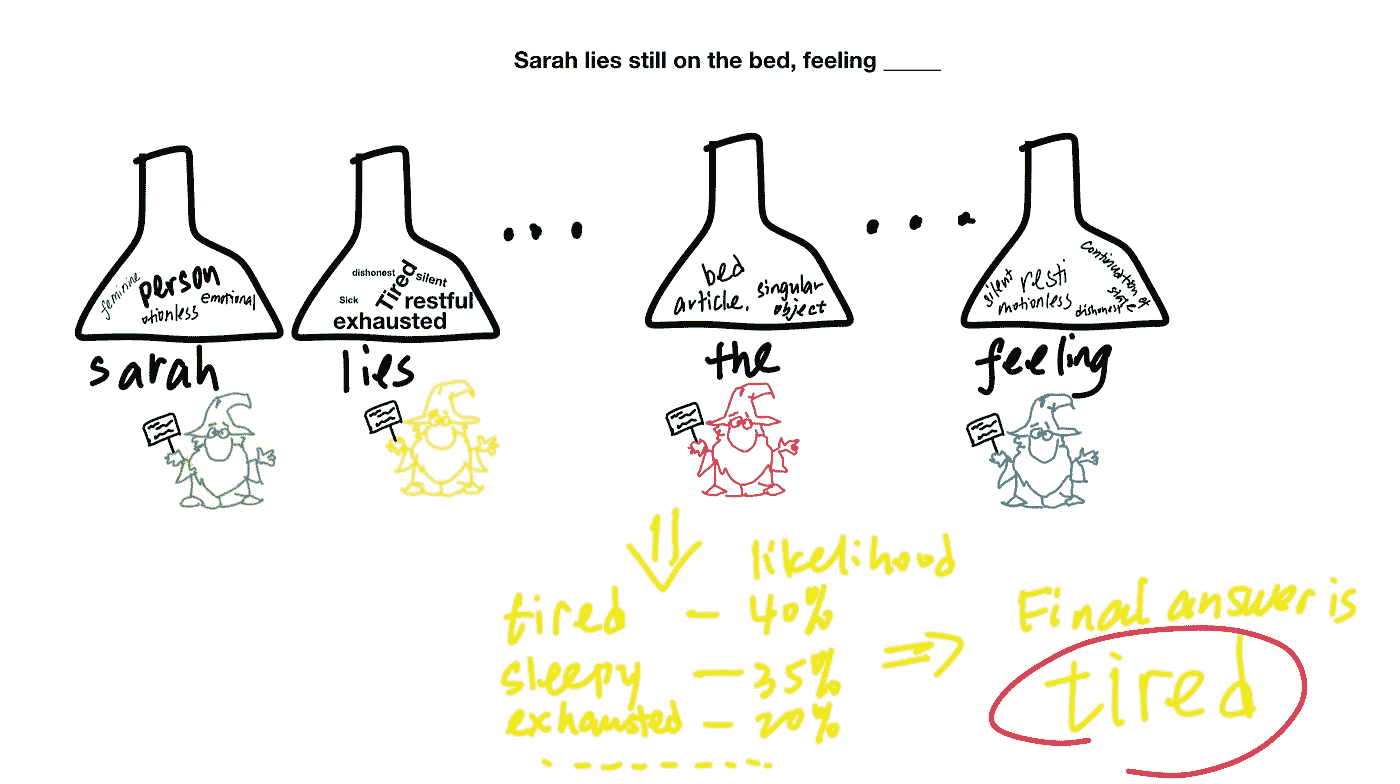 Sarah lies still on the bed, feeling _____
feminine
person
otionless
emotional
dishonest
Tired
silent
Sick
restful
exhausted
bed
article.
singular
object
silent
resti
motionless
continuation of
state
dishonest
sarah
lies
the
feeling
likelihood
tired - 40%
sleepy - 35%
exhausted - 20%
Final answer is
tired